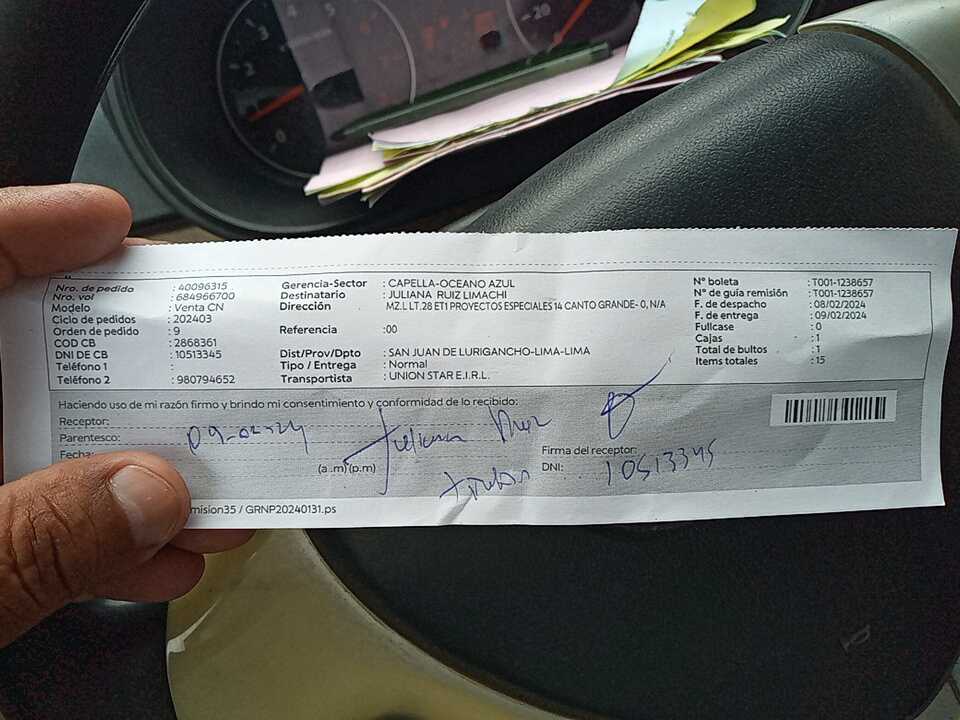 Nro. de pedido : 40096315
Nro. vol : 684966700
Modelo : Venta CN
Ciclo de pedidos : 202403
Orden de pedido : 9
COD CB : 2868361
DNI DE CB : 10513345
Teléfono 1 :
Teléfono 2 : 980794652
Gerencia-Sector : CAPELLA-OCEANO AZUL
Destinatario : JULIANA RUIZ LIMACHI
Dirección MZ.L LT.28 ET1 PROYECTOS ESPECIALES 14 CANTO GRANDE- 0, N/A
Referencia :00
Dist/Prov/Dpto : SAN JUAN DE LURIGANCHO-LIMA-LIMA
Tipo / Entrega : Normal
Transportista : UNION STAR E.I.R.L.
N° boleta : T001-1238657
N° de guía remisión : T001-1238657
F. de despacho : 08/02/2024
F. de entrega : 09/02/2024
Fullcase : 0
Cajas : 1
Total de bultos : 1
Items totales : 15
Haciendo uso de mi razón firmo y brindo mi consentimiento y conformidad de lo recibido:
Receptor: Juliana
Parentesco:
Fecha: 09-02-24 (a .m) (p.m)
Firma del receptor:
DNI: 10513345
mision35 / GRNP20240131.ps
3
4
5
2
0
-20